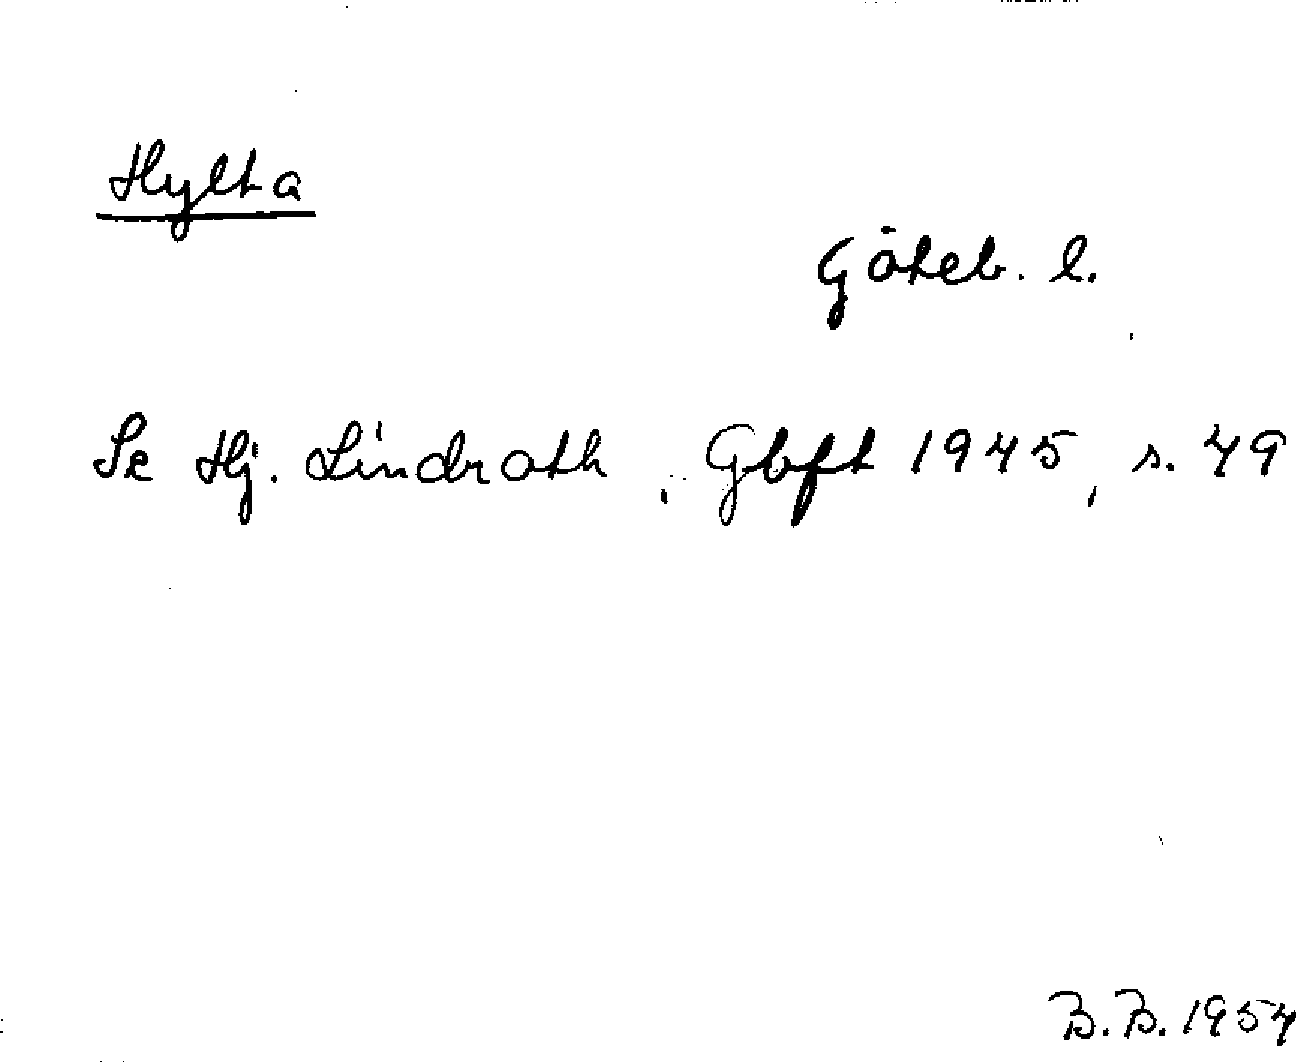 Hylta
Göteb. l.
Se Hj. Lindroth, Gbft 1945, s. 49
B.B. 1954